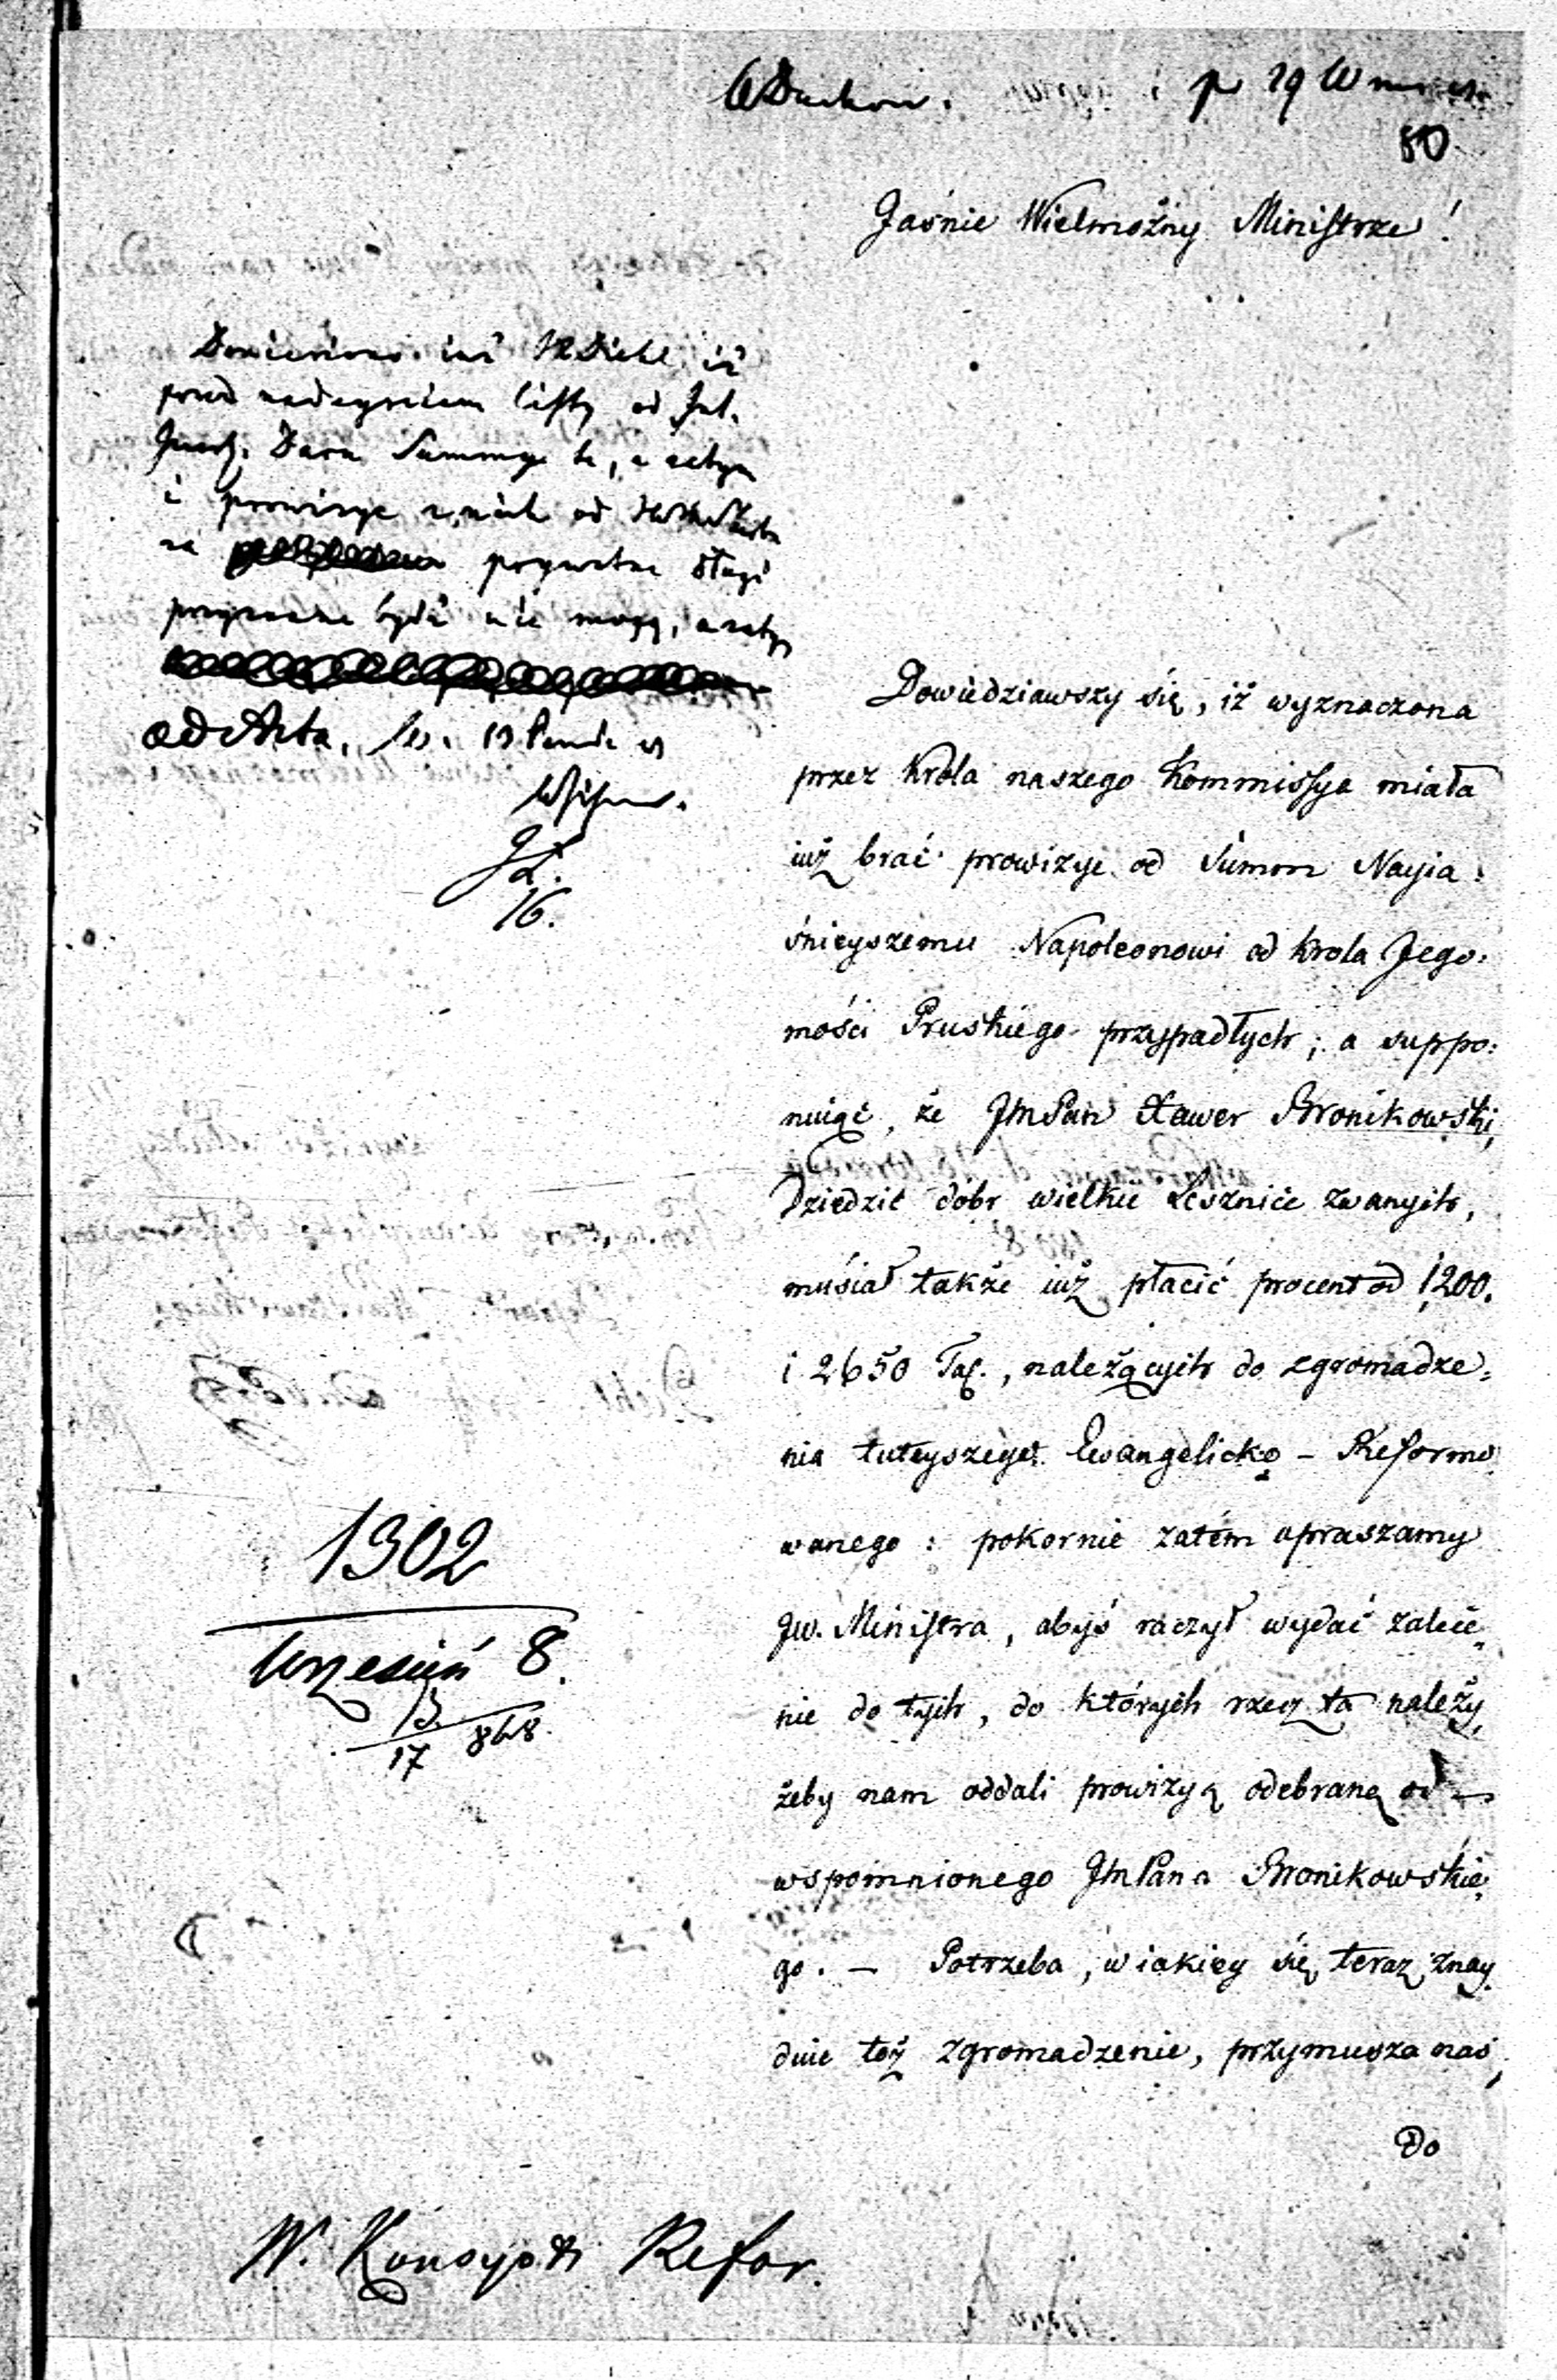 p 29
80
Jaśnie Wielmożny Ministrze!
Doniesiono iuż iż
przed nadeyściem listy od Int.
Summy te, a zatym
i prowizye z nich od
za prywatne długi
przyznane bydź nie mogą, a zatym
ad Acta.
16.
Dowiedziawszy się, iż wyznaczona
przez Króla naszego Kommissya miała
iuż brać prowizye od Summ Nayia:
śnieyszemu Napoleonowi od Krola Jego:
mości Pruskiego przypadłych; a suppo:
nuiąc, że JmPan Xawer Bronikowski,
Dziedzic dobr wielkie Łesznice zwanych,
musiał także iuż płacić procent od 1200.
i 2650 Tal., należących do zgromadze:
nia tuteyszego Ewangelicko - Reformo
wanego: pokornie zatém upraszamy
Jw. Ministra, abyś raczył wydać zalece
nie do tych, do których rzecz ta należy,
żeby nam oddali prowizyą odebraną od
wspomnionego JmPana Bronikowskie
go. — Potrzeba, w iakiey się teraz znay
duie toż zgromadzenie, przymusza nas,
Do
1302
Wrzesień 8.
13.
17 868.
W. Konsyst Refor.